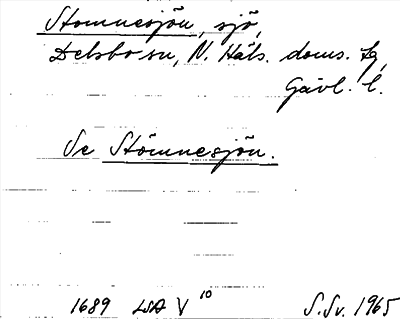 Stomnesjön, sjö,
Delsbo sn, N. Häls. doms. tg,
Gävl. l.
Se Stömnesjön.
1689 LSA V 10 S. Sv. 1965